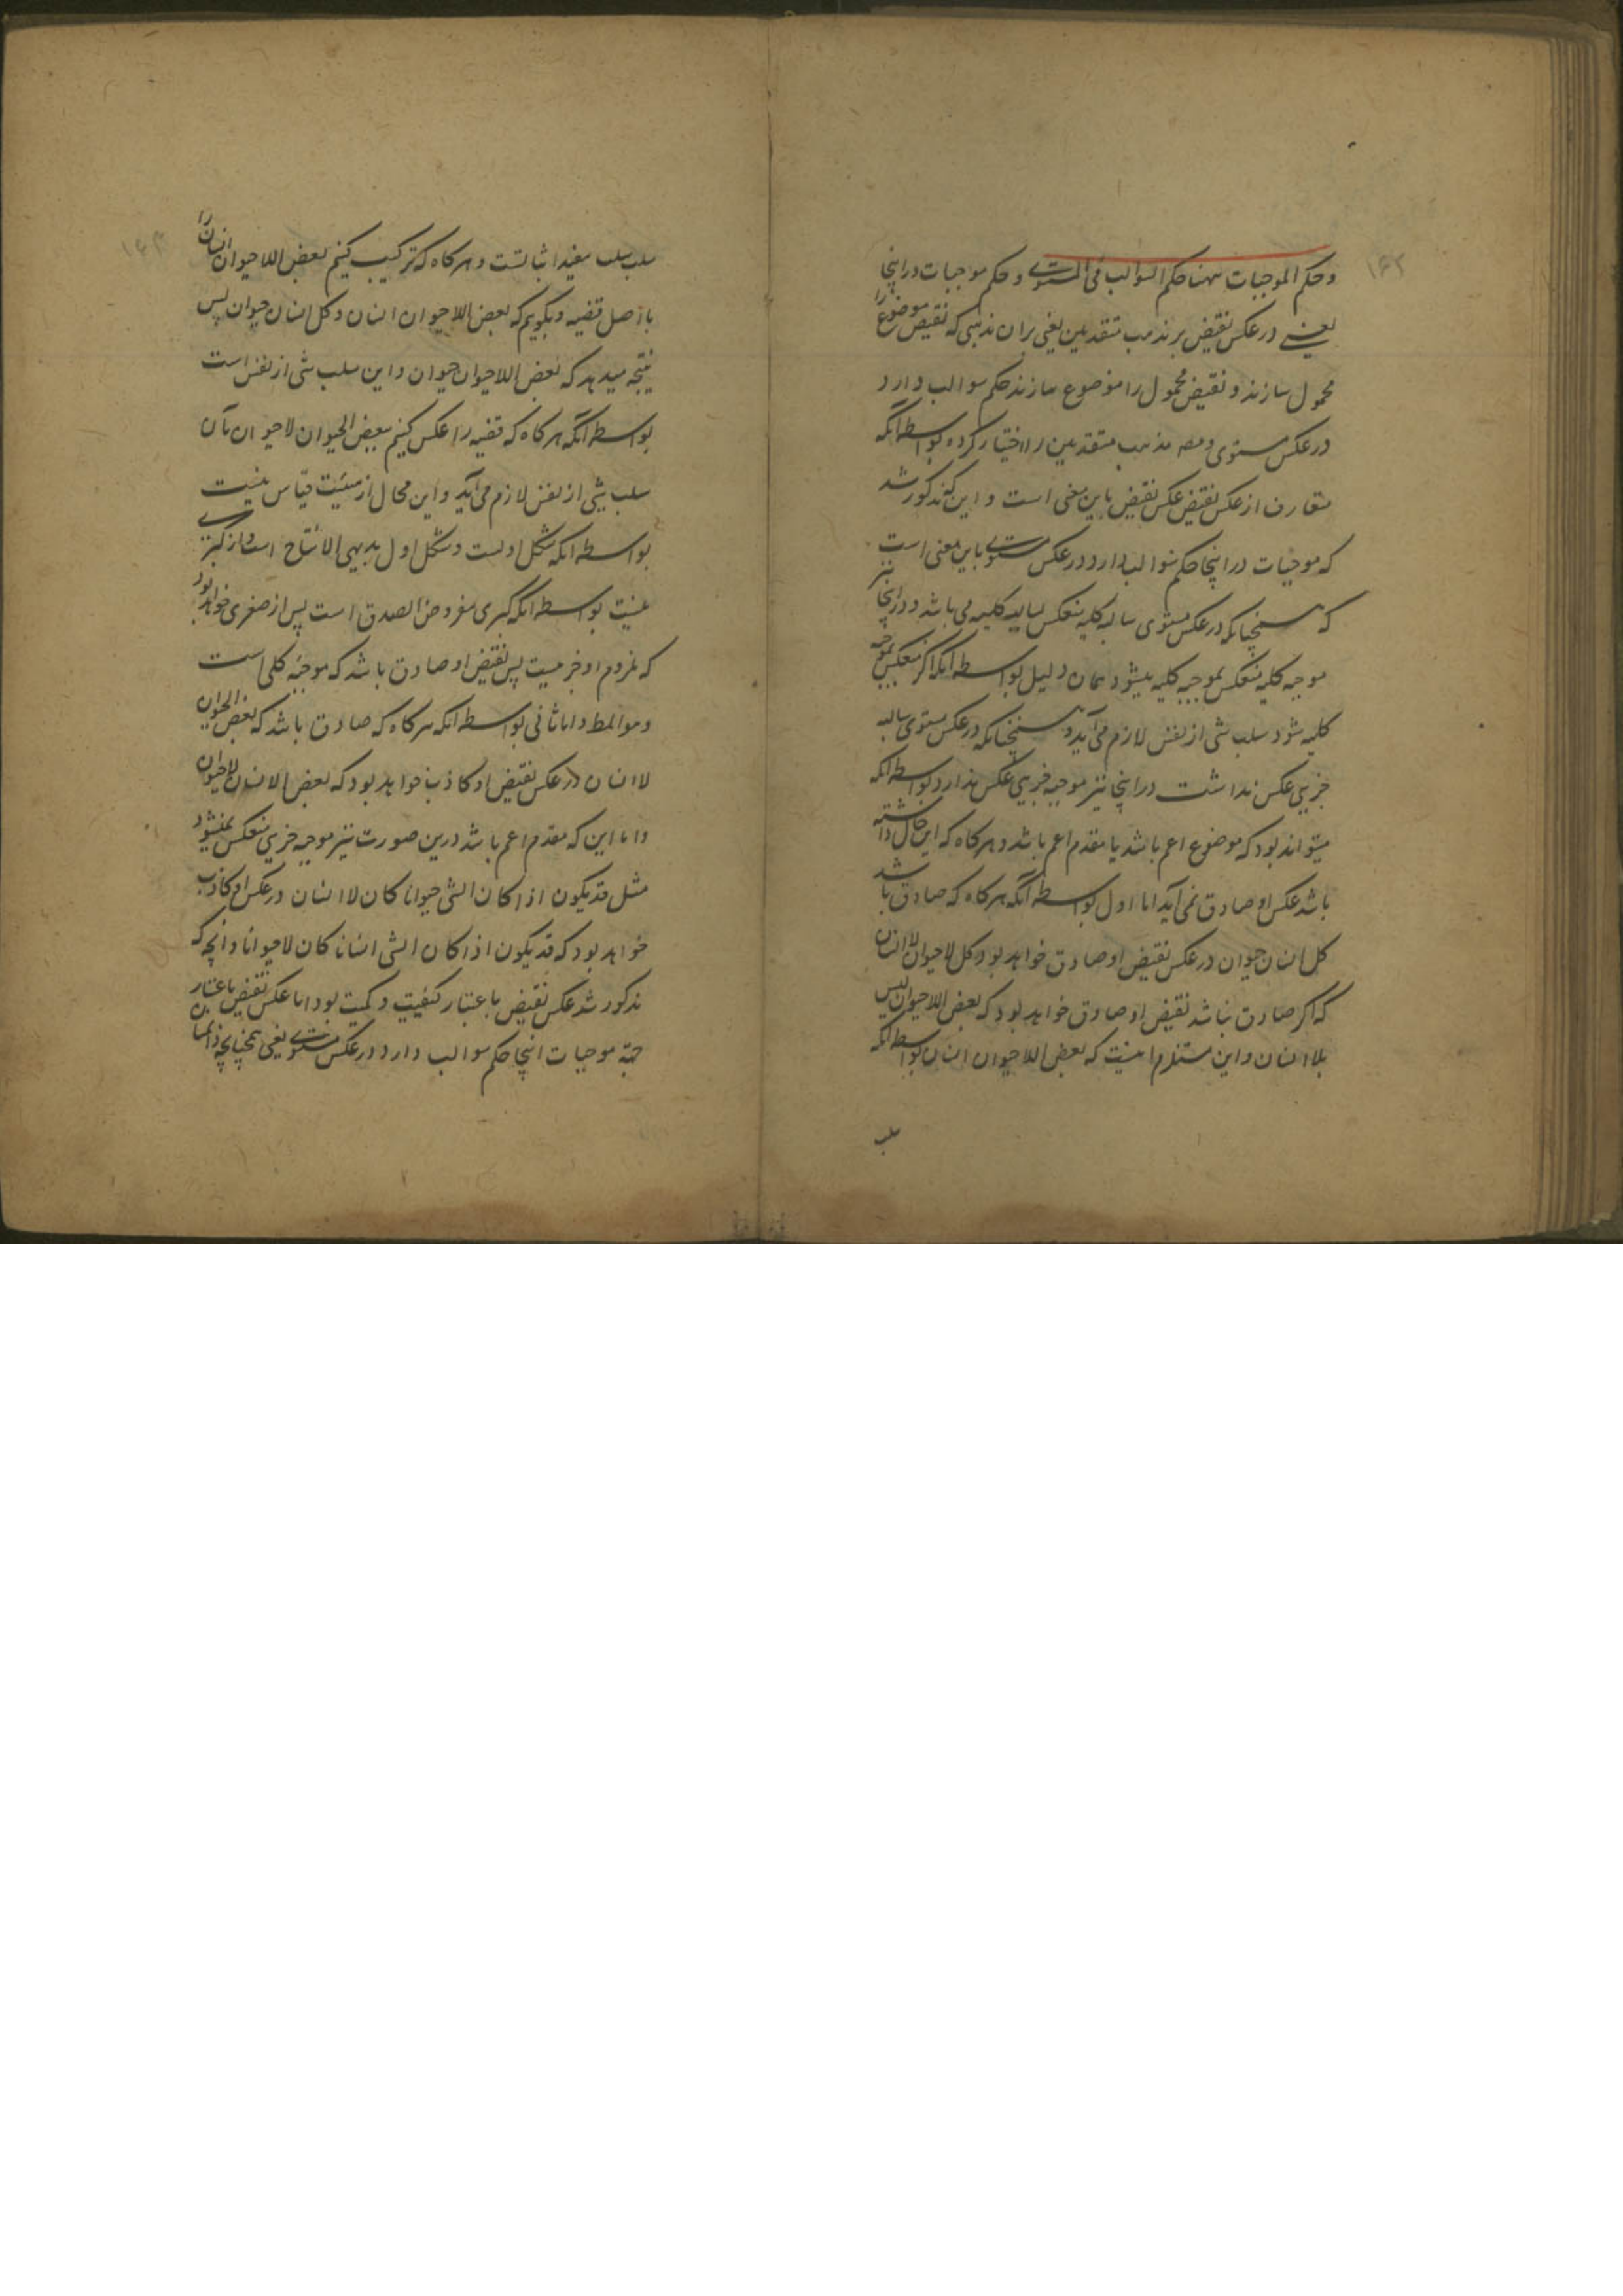 ۱۶۲
و حکم الموجبات ههنا حکم السوالب فی المستوی و حکم موجبات در اینجا
یعنی در عکس نقیض بر مذهب متقدمین یعنی بران مذهبی که نقیض موضوع را
محمول سازند و نقیض محمول را موضوع سازند حکم سوالب دارد
در عکس مستوی و مصه مذهب متقدمین را اختیار کرده بواسطه آنکه
متعارف از عکس نقیض عکس نقیض باین معنی است و این که مذکور شد
که موجبات در اینجا حکم سوالب دارد در عکس مستوی باین معنی است
که همچنانکه در عکس مستوی سالبه کلیه منعکس بسالبه کلیه می باشد و در اینجا نیز
موجبه کلیه منعکس بموجبه کلیه میشود بهمان دلیل بواسطه آنکه اگر منعکس بموجبه
کلیه نشود سلب شی از نفس لازم می آید و همچنانکه در عکس مستوی سالبه
جزیی عکس نداشت در اینجا نیز موجبه جزیی عکس ندارد بواسطه آنکه
میتواند بود که موضوع اعم باشد یا مقدم اعم باشد و هر کاه که این حال داشته
باشد عکس او صادق نمی آید اما اول بواسطه آنکه هر کاه که صادق باشد
کل انسان حیوان در عکس نقیض او صادق خواهد بود و کل لاحیوان لاانسان
که اکر صادق نباشد نقیض او صادق خواهد بود که بعض اللاحیوان لیس
بلاانسان و این مستلزم اینست که بعض اللاحیوان انسان بواسطه آنکه
سلب
۱۶۳
سلب سلب مفید اثباتست و هر کاه که ترکیب کنیم بعض اللاحیوان انسان را
باصل قضیه و بکوییم که بعض اللاحیوان انسان و کل انسان حیوان پس
نتیجه میدهد که بعض اللاحیوان حیوان و این سلب شی از نفس است
بواسطه آنکه هر کاه که قضیه را عکس کنیم ببعض الحیوان لاحیوان بآن
سلب شی از نفس لازم می آید و این محال از هیئت قیاس نیست
بواسطه آنکه شکل اولست و شکل اول بدیهی الانتاج است و از کبری
نیست بواسطه آنکه کبری مفروض الصدق است پس از صغری خواهد بود
که ملزوم او جز نیست پس نقیض او صادق باشد که موجبه کلی است
و هو المط و اما ثانی بواسطه آنکه هر کاه که صادق باشد که بعض الحیوان
لاانسان در عکس نقیض او کاذب خواهد بود که بعض الانسان لاحیوان
و اما این که مقدم اعم باشد درین صورت نیز موجبه جزیی منعکس نمیشود
مثل قد یکون اذا کان الشی حیوانا کان لاانسان در عکس او کاذب
خواهد بود که قد یکون اذا کان الشی انسانا کان لاحیوانا و آنچه که
مذکور شد عکس نقیض باعتبار کیفیت و کمیت بود اما عکس نقیض باعتبار
جهة موجبات اینجا حکم سوالب دارد در عکس مستوی یعنی همچنانچه